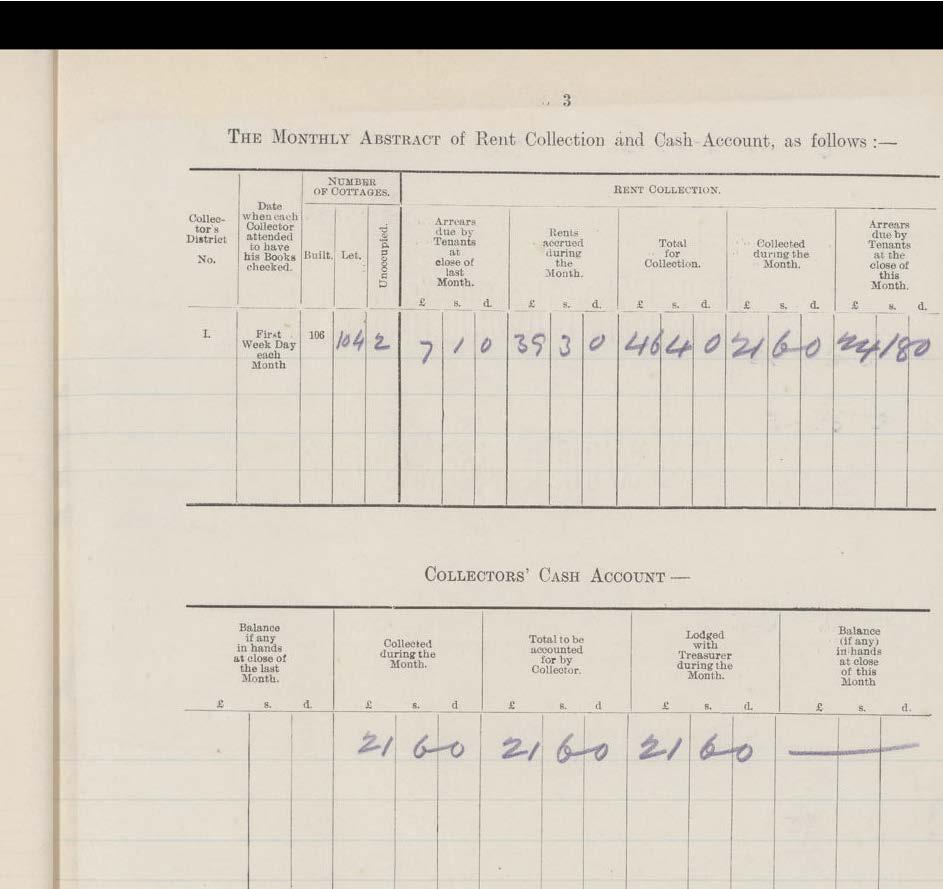 3
THE MONTHLY ABSTRACT of Rent Collection and Cash Account, as follows :—
Collec-
tor's
District
No.
Date
when each
Collector
attended
to have
his Books
checked.
NUMBER
OF COTTAGES.
Built.
Let.
Unoccupied.
RENT COLLECTION.
Arrears
due by
Tenants
at
close of
last
Month.
Rents
accrued
during
the
Month.
Total
for
Collection.
Collected
during the
Month.
Arrears
due by
Tenants
at the
close of
this
Month.
£ s. d. £ s. d. £ s. d. £ s. d. £ s. d.
I.
First
Week Day
each
Month
106 104 2 7 1 0 39 3 0 46 4 0 21 6 0 24 18 0
COLLECTORS' CASH ACCOUNT —
Balance
if any
in hands
at close of
the last
Month.
Collected
during the
Month.
Total to be
accounted
for by
Collector.
Lodged
with
Treasurer
during the
Month.
Balance
(if any)
in hands
at close
of this
Month
£ s. d. £ s. d £ s. d £ s. d. £ s. d.
21 6 0 21 6 0 21 6 0 —